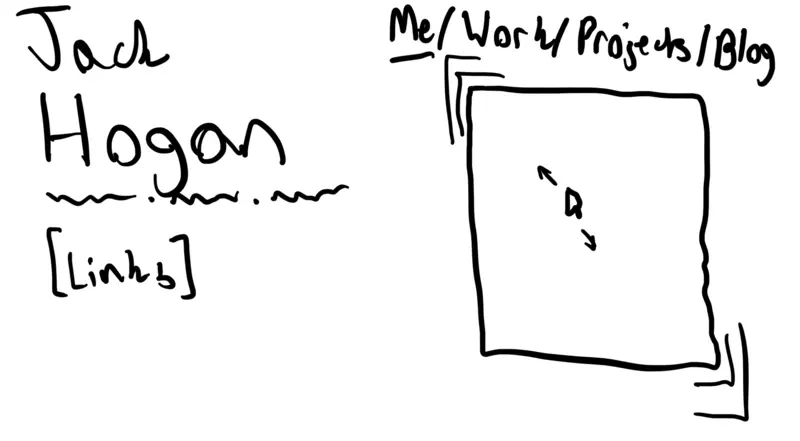 Jack
Hogan
[Links]
Me/Work/Projects/Blog